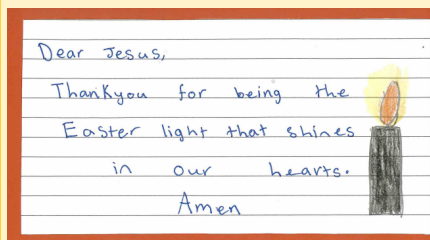 Dear Jesus,
Thankyou for being the
Easter light that shines
in our hearts.
Amen